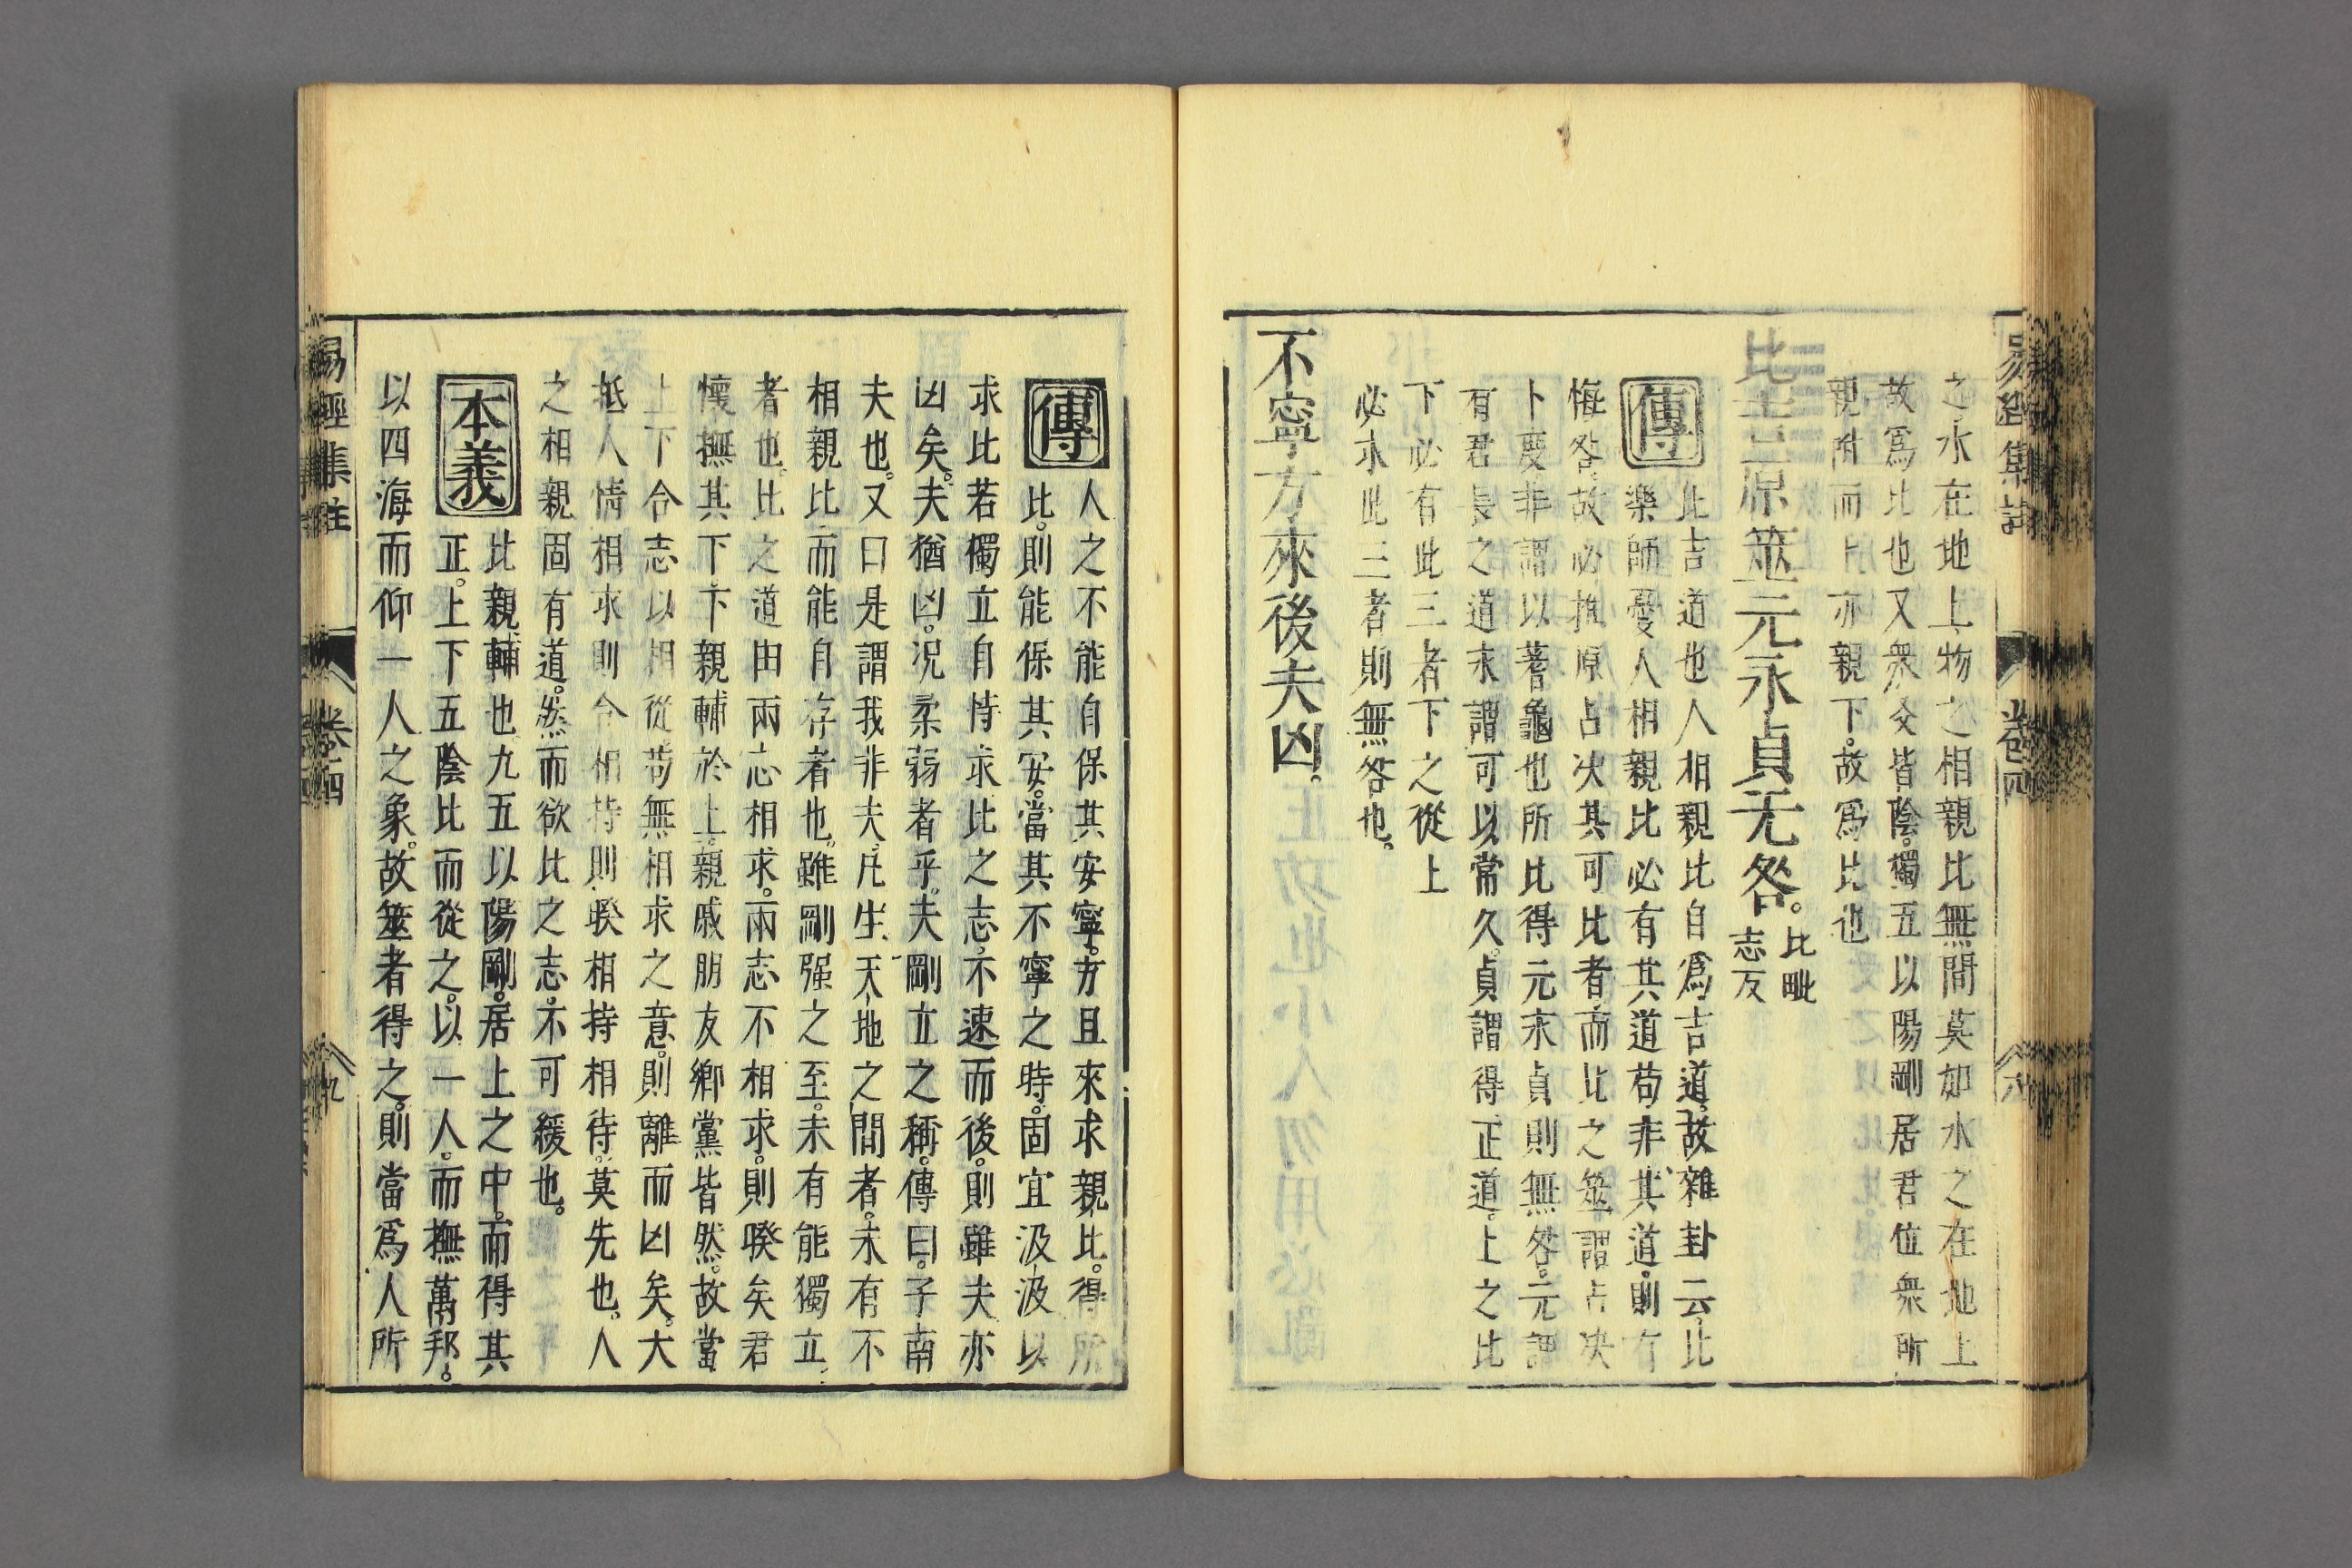 易經集註
卷四
八
之水在地上物之相親比無間莫如水之在地上
故爲比也又衆爻皆陰獨五以陽剛居君位衆所
親附而上亦親下故爲比也
比吉原筮元永貞无咎比毗
志反
傳比吉道也人相親比自爲吉道故雜卦云比
樂師憂人相親比必有其道苟非其道則有
悔咎故必推原占决其可比者而比之筮謂占决
卜度非謂以蓍龜也所比得元永貞則無咎元謂
有君長之道永謂可以常久貞謂得正道上之比
下必有此三者下之從上
必求此三者則無咎也
不寧方來後夫凶
傳人之不能自保其安寧方且來求親比得所
比則能保其安當其不寧之時固宜汲汲以
求比若獨立自恃求比之志不速而後則雖夫亦
凶矣夫猶凶况柔弱者乎夫剛立之稱傳曰子南
夫也又曰是謂我非夫凡生天地之間者未有不
相親比而能自存者也雖剛强之至未有能獨立
者也比之道由兩志相求兩志不相求則暌矣君
懷撫其下下親輔於上親戚朋友鄉黨皆然故當
上下合志以相從苟無相求之意則離而凶矣大
抵人情相求則合相持則暌相持相待莫先也人
之相親固有道然而欲比之志不可緩也
本義比親輔也九五以陽剛居上之中而得其
正上下五陰比而從之以一人而撫萬邦
以四海而仰一人之象故筮者得之則當爲人所
易經集註
卷四
九